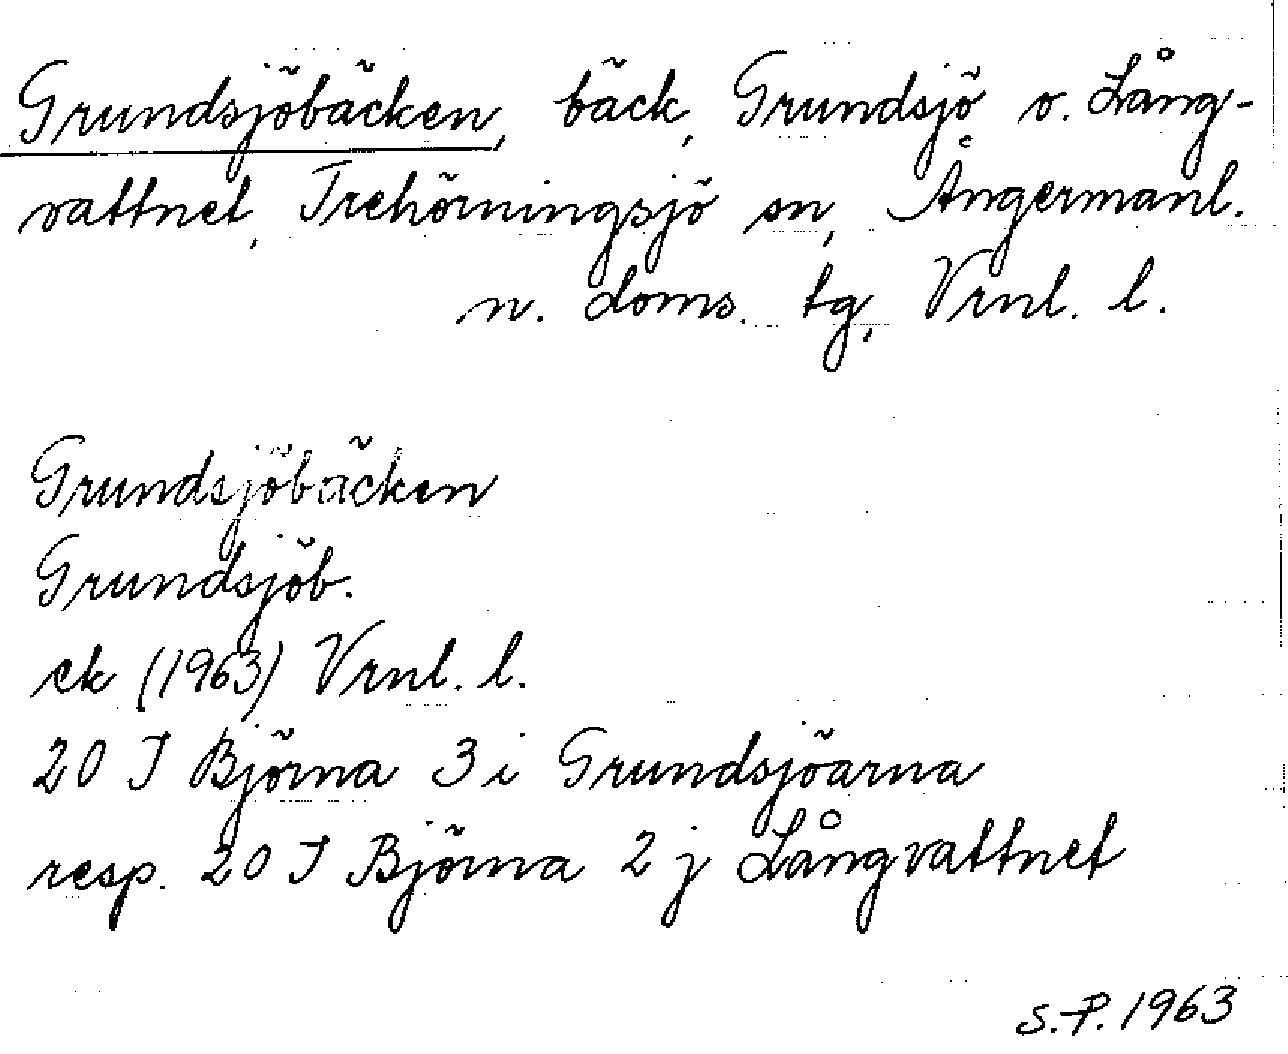 Grundsjöbäcken, bäck, Grundsjö o. Lång-
vattnet, Trehörningsjö sn, Ångermanl.
n. doms. tg, Vrnl. l.
Grundsjöbäcken
Grundsjöb.
ek (1963) Vrnl. l.
20 J Björna 3 i Grundsjöarna
resp. 20 J Björna 2 j Långvattnet
S.P. 1963